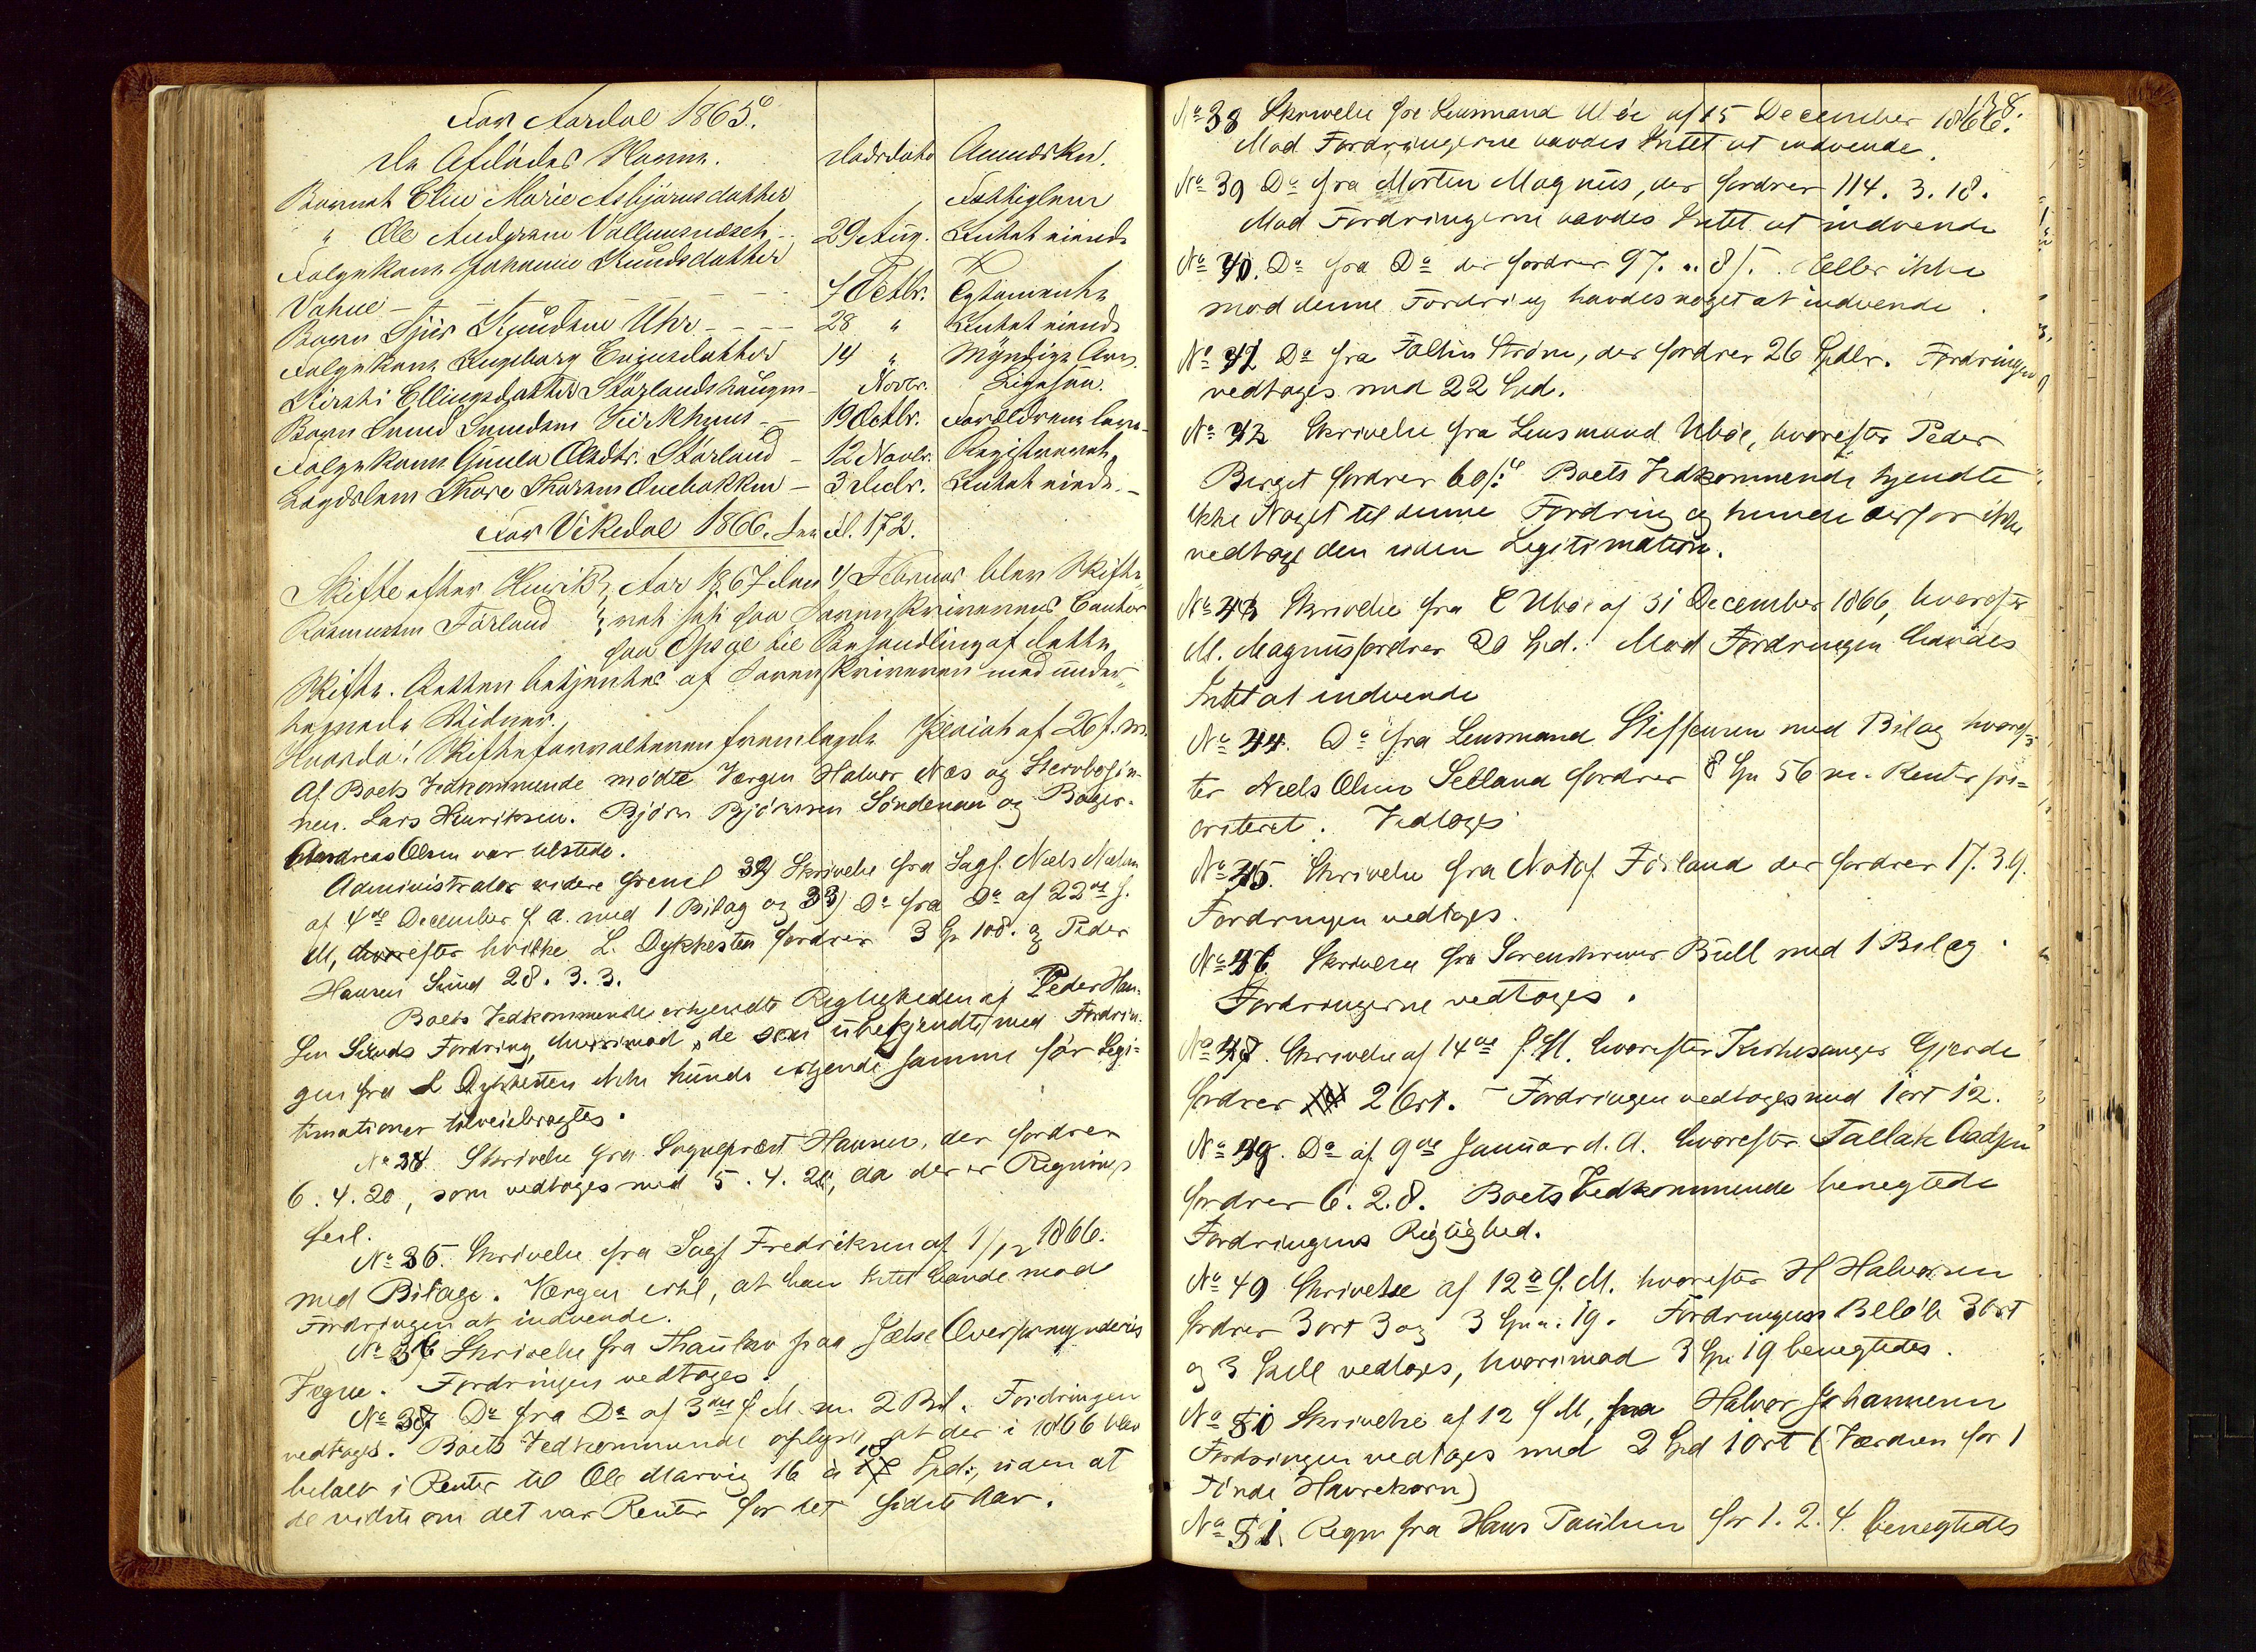 For Aardal 1865.
De Afdødes Navne. Dødsdato Anmærkn.
Barnet Elen Marie Asbjørnsdatter Fattiglem
" Ole Andreas 29 Aug. Intet eiende
Følgekone Johanne Knudsdatter
Vatne - 1 Octbr. Testamente
Barn Sjur Knudsen Uhr - 28 " Intet eiende
Følgekone Ingeborg datter 14 " Myndige Arv.
Kirsti Ellingsdatter Novbr. Ligesaa.
Barn Svend Svendsen Kirkhuus - 19 Octbr. Forældrene leve
Følgekone Gunla Olsdtr. - 12 Novbr. Registreret
Lægdslem Thore Thorsen - 3 Decbr. Intet eiende. -
For Vikedal 1866. Fol. 172.
Skifte efter Henrik Aar 1867 den 4 Februar blev Skifte-
Rasmussen Førland ret sat paa Sorenskriverens Contor
paa Opsal til Behandling af dette
Skifte. Retten betjentes af Sorenskriveren med under-
tegnede Vidner.
Hvorda: Skifteforvalteren fremlagde Placat af 26 f. M.
Af Boets Vedkommende mødte Værgen Halvor Næs og Stervbosøn-
nen. Lars Henriksen. Bjørn Bjørnsen Søndenaa og
Andreas Olsen var tilstede.
Administrator videre freml 32) Skrivelse fra Sagf. Niels Nielsen
af 4de December f. A. med 1 Bilag og 33) Do fra Do af 22de f.
M, efter hvilke L. Dykkesten fordrer 3 Sp 108. og Peder
Hansen Sund 28. 3. 3.
Boets Vedkommende erkjendte Rigtigheden af Peder Han-
sen Sunds Fordring, hvorimod de som ubekjendte med Fordrin-
gen fra L Dykkesten ikke kunde erkjende samme før Legi-
timationer tilveiebragtes.
No 34. Skrivelse fra Sogneprest Hansen, der fordrer
6. 4. 20, som vedtages med 5. 4. 20, da der er Regnings
feil.
No 35. Skrivelse fra Sagf Fredriksen af 1/12 1866.
med Bilage. Værgen erkl, at han Intet havde mod
Fordringen at indvende.
No 36 Skrivelse fra Thaulow paa Jælse Overformynderies
Vegne. Fordringen vedtages.
No 37 Do fra Do af 3die f. M. m. 2 Bil. Fordringen
vedtages. Boets Vedkommende oplyse, at der i 1866 blev
betalt i Renter til Ole Marvig 16 à 18 Spd:, uden at
de vidste om det var Renter for det sidste Aar.
138.
No 38 Skrivelse fra Lensmand Ubøe af 15 December 1866.
Mod Fordringerne havdes Intet at indvende.
No 39 Do fra Morten Magnus, der fordrer 114. 3. 18.
Mod Fordringerne havdes Intet at indvende
No 40. Do fra Do der fordrer 97. " 8 /. Heller ikke
mod denne Fordring havdes noget at indvende.
No 41 Do fra Faltin Strøm, der fordrer 26 Spdlr. Fordringen
vedtages med 22 Spd.
No 42 Skrivelse fra Lensmand Ubøe, hvorefter Peder
Berget fordrer 60 /: Boets Vedkommende kjendte
ikke Noget til denne Fordring og kunde derfor ikke
vedtage den uden Legitimation.
No 43 Skrivelse fra E Ubøe af 31 December 1866, hvorefter
M. Magnus fordrer 20 Spd. Mod Fordringen havdes
Intet at indvende
No 44. Do fra Lensmand Steffensen med Bilag hvoref-
ter Niels Olsen Selland fordrer 8 Sp 56 m. Renter pri-
oriteret. Vedtages
No 45. Skrivelse fra Notof Førland der fordrer 17. 3. 9.
Fordringen vedtages.
No 46. Skrivelse fra Sorenskriver Bull med 1 Bilag.
Fordringerne vedtages.
No 47. Skrivelse af 14de f. M. hvorefter Kirkesanger Gjerde
fordrer 2 Ort. - Fordringen vedtages med 1 ort 12.
No 48. Do af 9de Januar d. A. hvorefter Tallak Aadsen
fordrer 6. 2. 8. Boets Vedkommende benegtede
Fordringens Rigtighed.
No 49 Skrivelse af 12te f. M. hvorefter H Halvorsen
fordrer 3 ort 3 og 3 Sp " 19. Fordringens Beløb 3 Ort
og 3 Skill vedtages, hvorimod 3 Sp 19 benegtedes.
No 50 Skrivelse af 12 f M, fra Halvor Johannesen
Fordringen vedtages med 2 Spd 1 Ort (Værdien for 1
Tønde Havrekorn)
No 51. Regn fra Hans Paulsen for 1. 2. 4. benegtedes